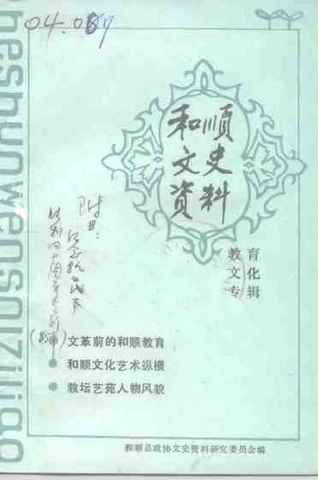 04.089
heshunwenshiziliao
和顺
文史
资料
教育
文化
专辑
附:
文革前的和顺教育
和顺文化艺术纵横
教坛艺苑人物风貌
和顺县政协文史资料研究委员会编